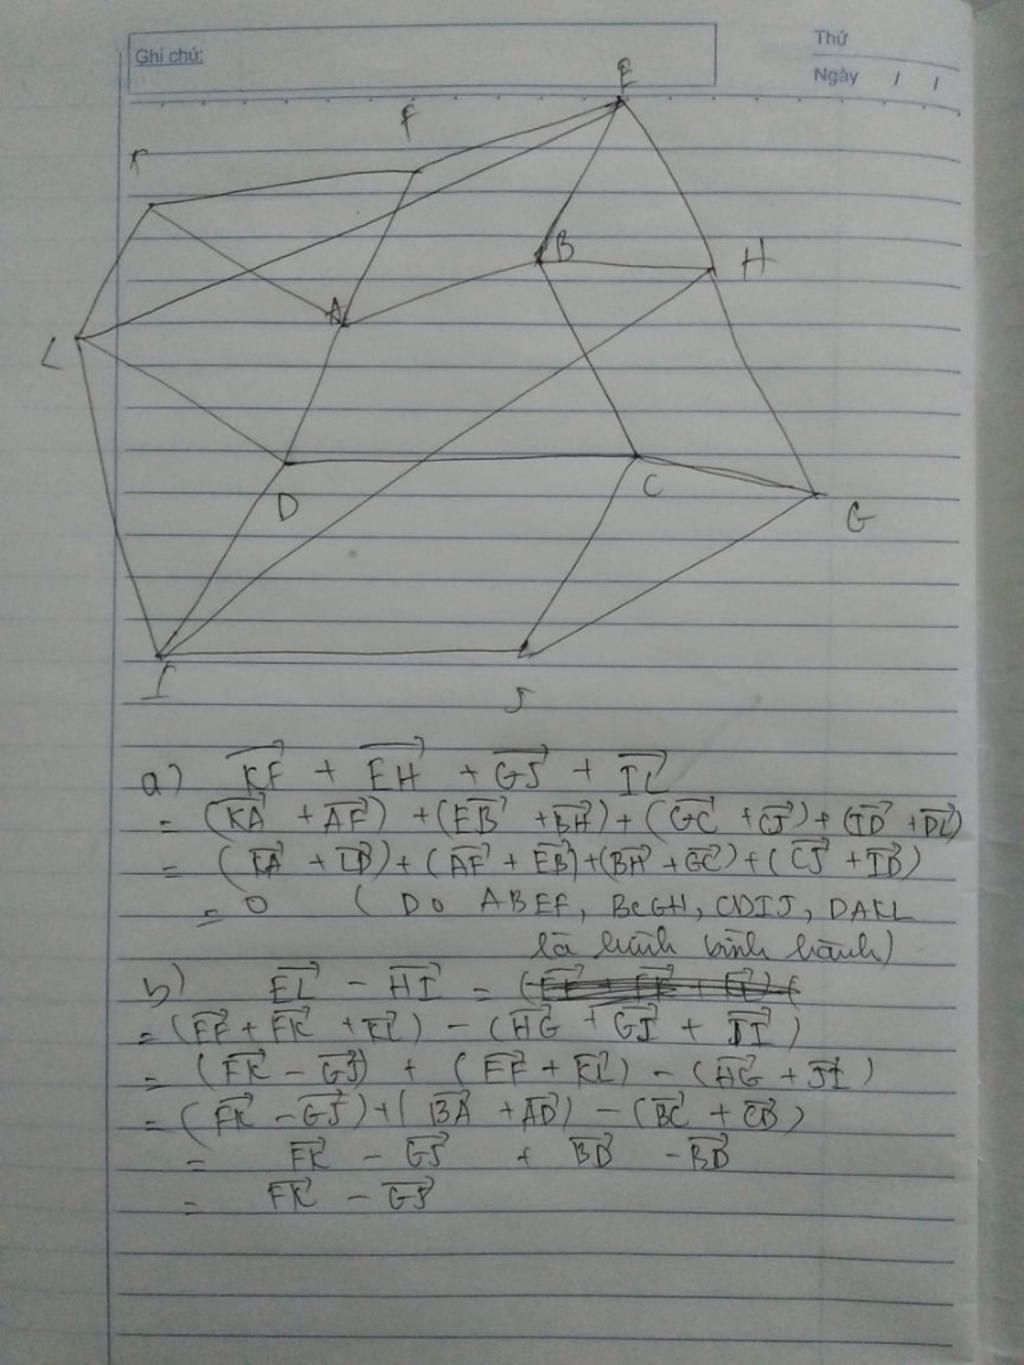 Ghi chú:
Thứ
Ngày / /
E
F
K
B
H
A
L
D
C
G
I
J
a) KF + EH + GJ + IL
= (KA + AF) + (EB + BH) + (GC + CJ) + (ID + DL)
= (KA + LD) + (AF + EB) + (BH + GC) + (CJ + ID)
= 0 ( Do ABEF, BCGH, CDIJ, DAKL
là hình bình hành)
b) EL - HI =
= (EF + FK + KL) - (HG + GJ + JI)
= (FK - GJ) + (EF + KL) - (HG + JI)
= (FK - GJ) + (BA + AD) - (BC + CD)
= FK - GJ + BD - BD
= FK - GJ